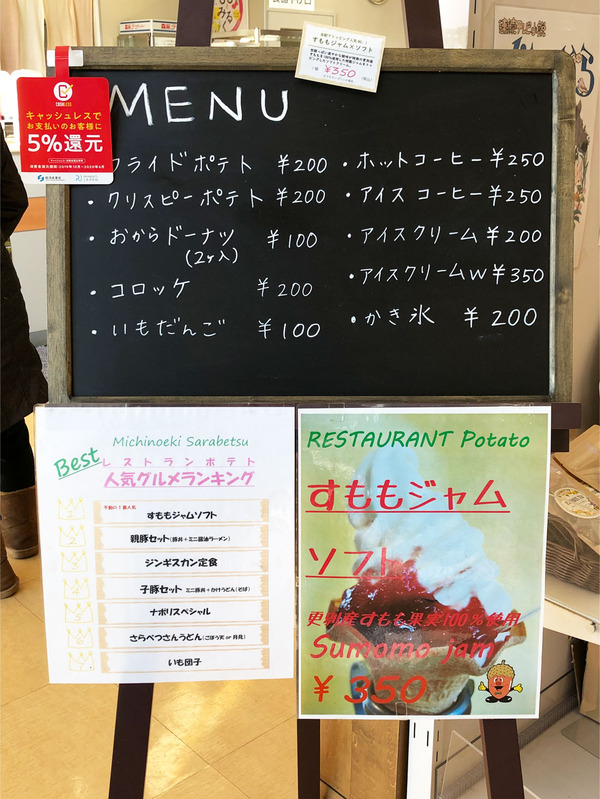 すももジャム×ソフト
¥350
CASHLESS
キャッシュレスで
お支払いのお客様に
5%還元
MENU
フライドポテト ¥200
・クリスピーポテト ¥200
・おからドーナツ ¥100
(2ヶ入)
・コロッケ ¥200
・いもだんご ¥100
・ホットコーヒー ¥250
・アイスコーヒー ¥250
・アイスクリーム ¥200
・アイスクリームW ¥350
・かき氷 ¥200
Michinoeki Sarabetsu
Best レストランポテト
人気グルメランキング
不動の1番人気
すももジャムソフト
2 親豚セット(豚丼+ミニ醤油ラーメン)
3 ジンギスカン定食
4 子豚セット ミニ豚丼+かけうどん(そば)
ナポリスペシャル
さらべつさんうどん(ごぼう天or月見)
いも団子
RESTAURANT Potato
すももジャム
ソフト
更別産すもも果実100%使用
Sumomo jam
¥350